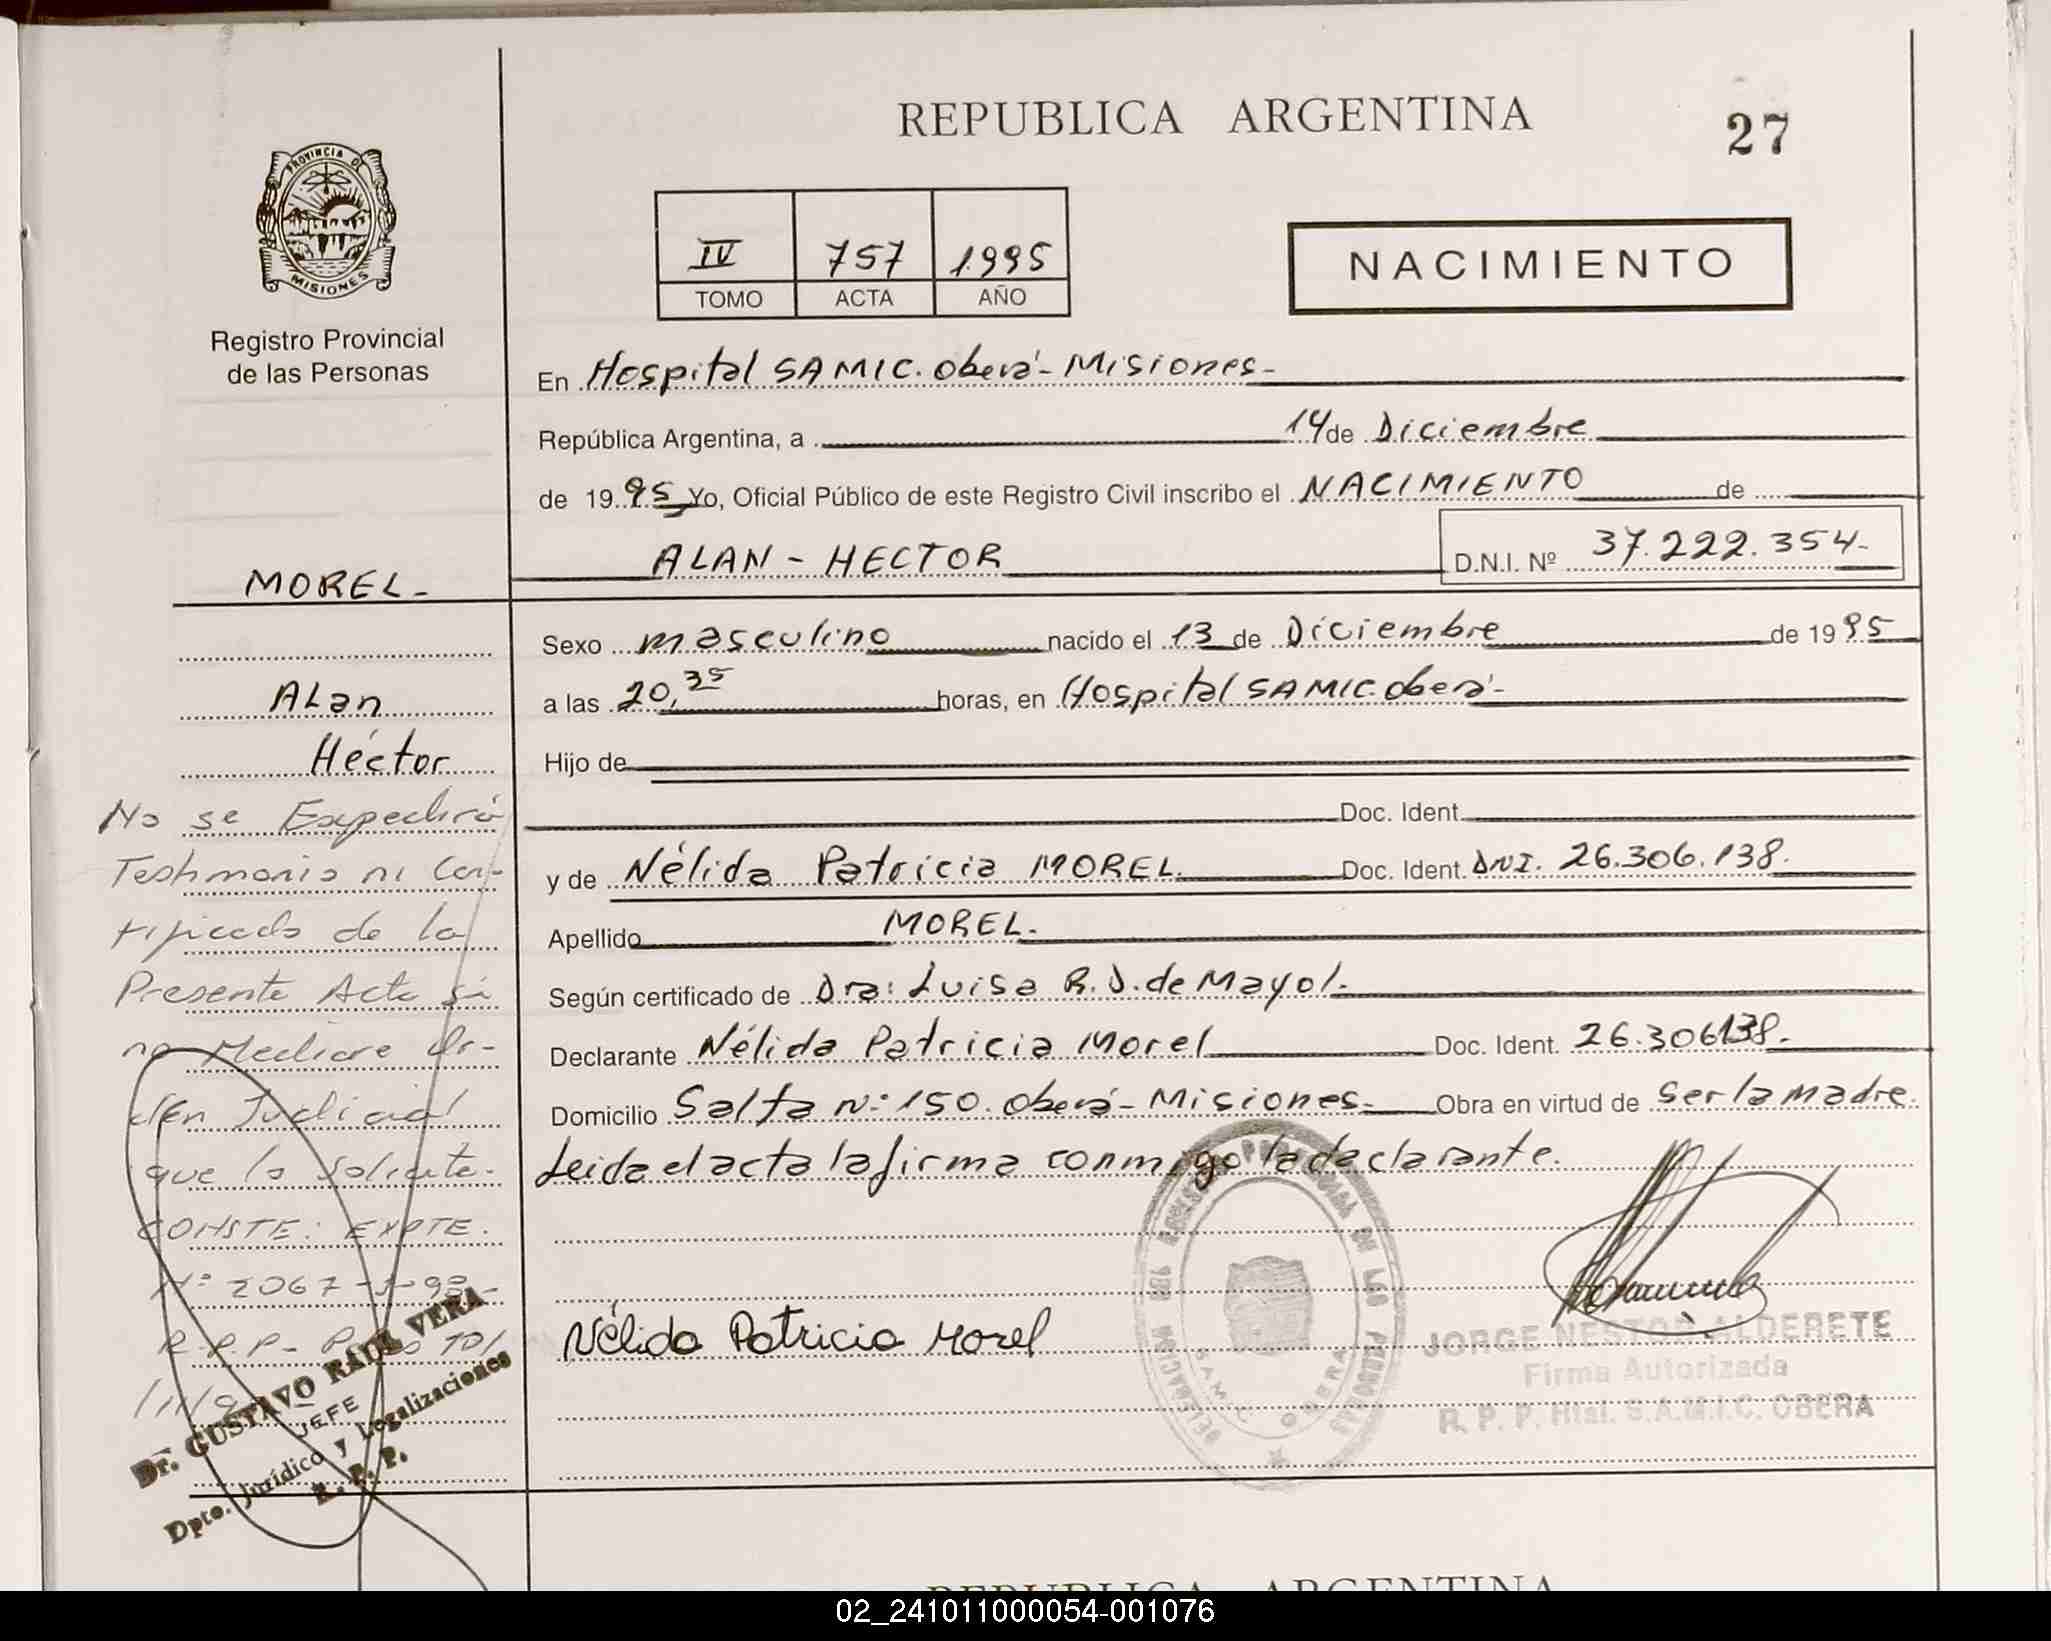 REPUBLICA ARGENTINA
27
PROVINCIA DE
MISIONES
Registro Provincial
de las Personas
IV 757 1995
TOMO ACTA AÑO
NACIMIENTO
En Hospital SAMIC. Oberá - Misiones -
República Argentina, a 14 de Diciembre
de 1995 Yo, Oficial Público de este Registro Civil inscribo el NACIMIENTO de
ALAN - HECTOR
D.N.I. Nº 37.222.354-
MOREL -
Alan
Héctor
Sexo masculino nacido el 13 de Diciembre de 1995
a las 20,35 horas, en Hospital SAMIC. Oberá -
Hijo de
Doc. Ident.
y de Nélida Patricia MOREL. Doc. Ident. DNI. 26.306.138.
Apellido MOREL.
Según certificado de Dra: Luisa R. D. de Mayol.
Declarante Nélida Patricia Morel Doc. Ident. 26.306138.
Domicilio Salta Nº 150. Oberá - Misiones. Obra en virtud de ser la madre.
Leida el acta la firma conmigo la declarante.
No se Expedirá
Testimonio ni Cer-
tificado de la
Presente Acta si
no Mediare Or-
den Judicial
que lo solicite.
CONSTE: EXPTE.
Nº 2067
R.P.P.
Dr. GUSTAVO RAUL VERA
JEFE
Dpto. Jurídico y Legalizaciones
R. P. P.
Nélida Patricia Morel
REGISTRO PROVINCIAL DE LAS PERSONAS
DELEGACION
SAMIC OBERA
JORGE NESTOR ALDERETE
Firma Autorizada
R. P. P. Htal. S.A.M.I.C. OBERA
REPUBLICA ARGENTINA
02_241011000054-001076